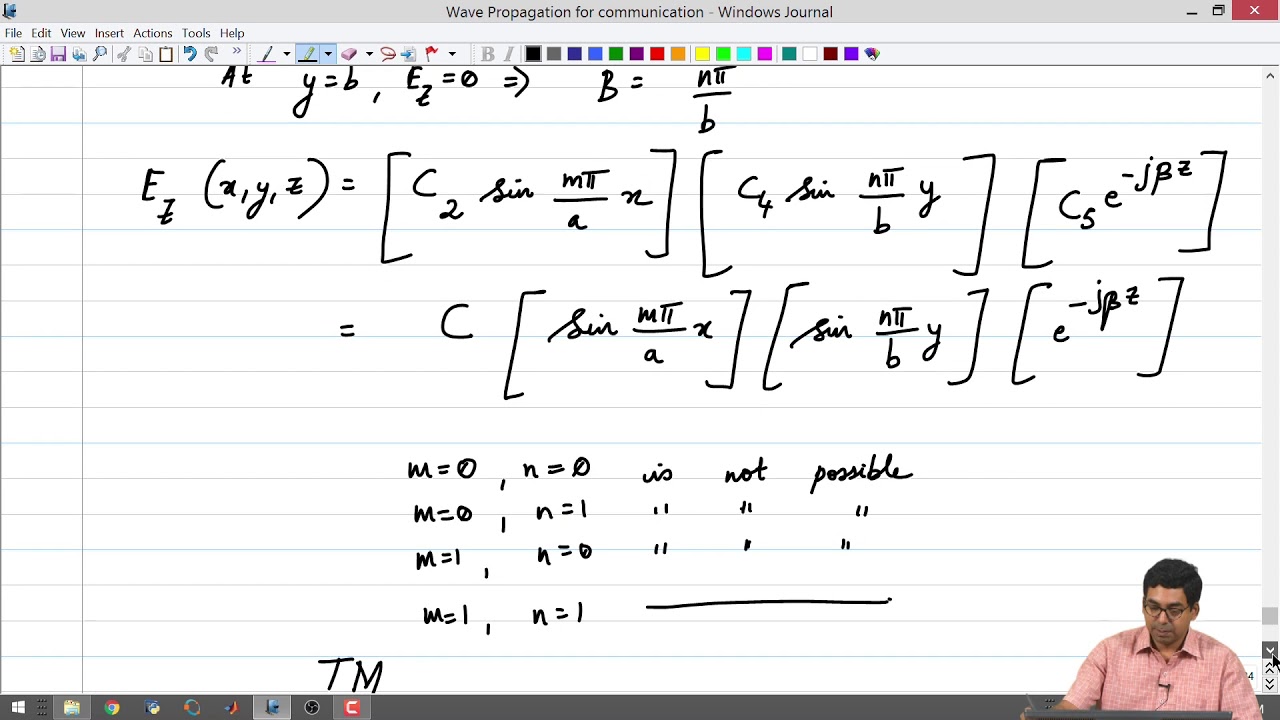 Wave Propagation for communication - Windows Journal
File Edit View Insert Actions Tools Help
At y=b, E_z=0 => B = nπ/b
E_z (x,y,z) = [C_2 sin mπ/a x] [C_4 sin nπ/b y] [C_5 e^{-jβz}]
= C [sin mπ/a x] [sin nπ/b y] [e^{-jβz}]
m=0, n=0 is not possible
m=0, n=1 " " "
m=1, n=0 " " "
m=1, n=1
TM